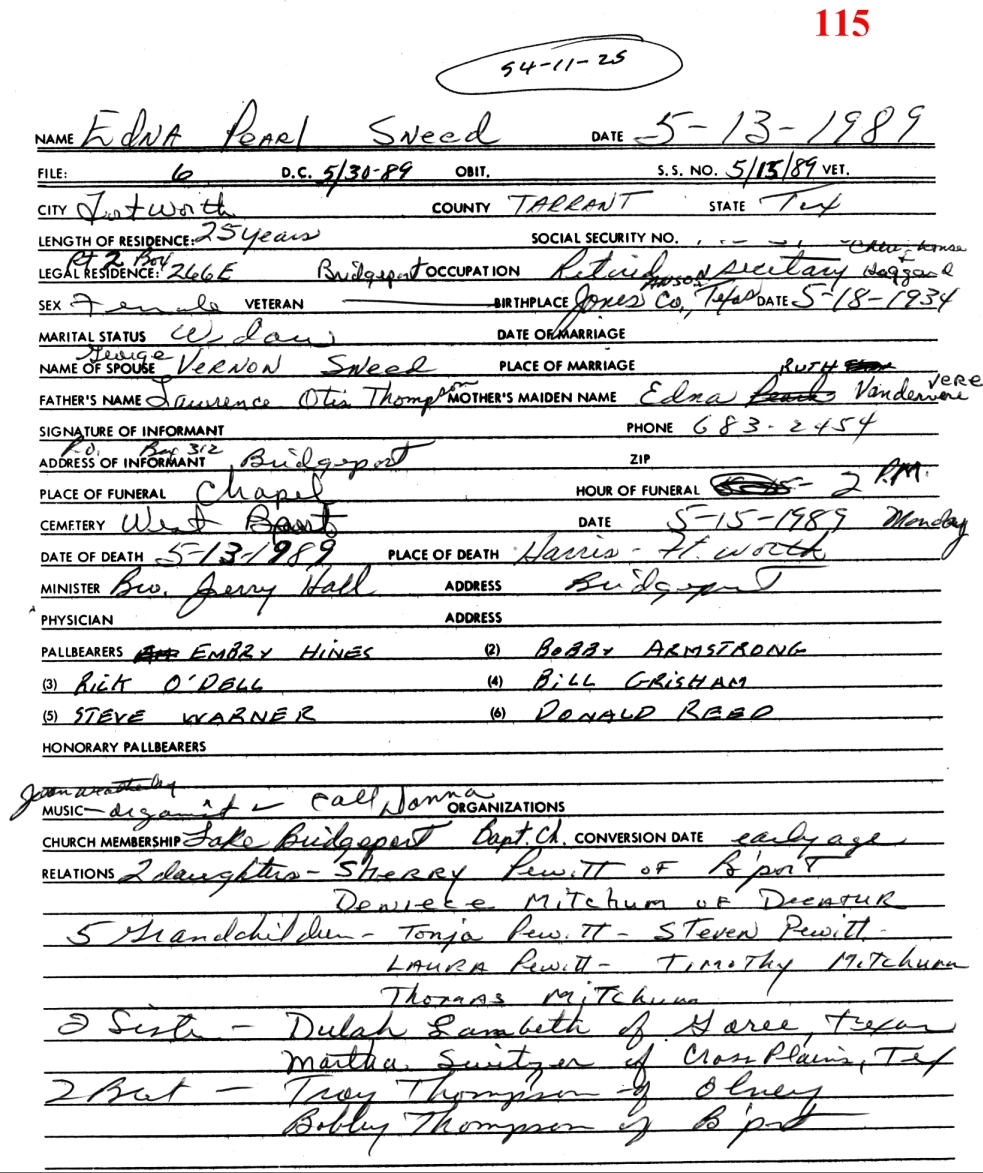 115
54-11-25
NAME Edna Pearl Sneed DATE 5-13-1989
FILE: 6 D.C. 5/30-89 OBIT. S.S. NO. 5/15/89 VET.
CITY Fort Worth COUNTY TARRANT STATE Tex
LENGTH OF RESIDENCE: 25 years SOCIAL SECURITY NO.
Rt 2 Box house
LEGAL RESIDENCE: 266E Bridgeport OCCUPATION Retired secretary Haggard
ANSON
SEX Female VETERAN BIRTHPLACE Jones Co, Texas DATE 5-18-1934
MARITAL STATUS Widow DATE OF MARRIAGE
George
NAME OF SPOUSE VERNON Sneed PLACE OF MARRIAGE RUTH
FATHER'S NAME Lawrence Otis Thompson MOTHER'S MAIDEN NAME Edna Pearl Vandervere VERE
SIGNATURE OF INFORMANT PHONE 683-2454
P.O. Box 312
ADDRESS OF INFORMANT Bridgeport ZIP
PLACE OF FUNERAL Chapel HOUR OF FUNERAL 2 P.M.
CEMETERY West Bport DATE 5-15-1989 Monday
DATE OF DEATH 5-13-1989 PLACE OF DEATH Harris - Ft. Worth
MINISTER Bro. Jerry Hall ADDRESS Bridgeport
PHYSICIAN ADDRESS
PALLBEARERS EMBRY HINES (2) BOBBY ARMSTRONG
(3) RICK O'DELL (4) BILL GRISHAM
(5) STEVE WARNER (6) DONALD REED
HONORARY PALLBEARERS
MUSIC- organist - Call Donna ORGANIZATIONS
CHURCH MEMBERSHIP Lake Bridgeport Bapt. Ch. CONVERSION DATE early age
RELATIONS 2 daughters - SHERRY Pewitt OF B'port
Deniece Mitchum OF DECATUR
5 Grandchildren - Tonja Pewitt - STEVEN Pewitt -
LAURA Pewitt - TIMOTHY Mitchum
Thomas Mitchum
2 Siste - Dulah Lambeth of Goree, Texas
Martha Switzer of Cross Plains, Tex
2 Brot - Troy Thompson of Olney
Bobby Thompson of B'port